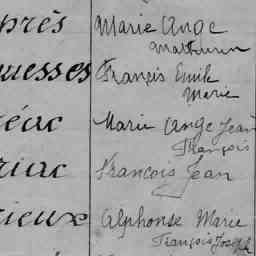 près Marie Ange
Mathurin
uesses François Emile
Marie
éac Marie Ange Jean
François
riac Francois Jean
rieux Alphonse Marie
François Joseph